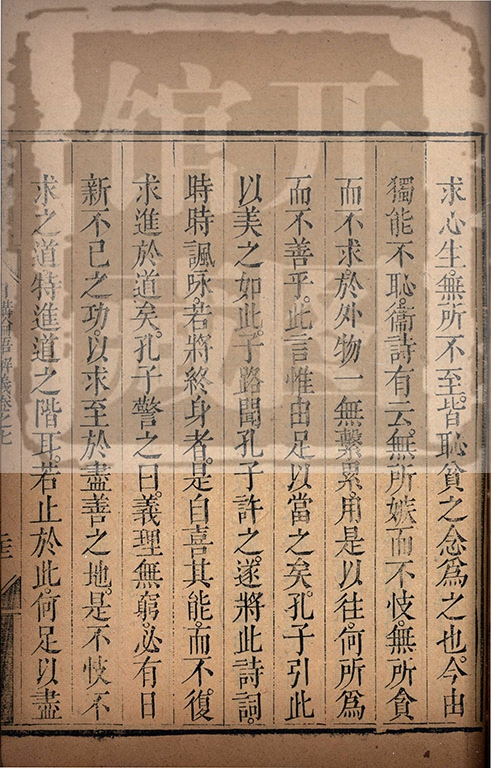 求心生。無所不至。皆恥貧之念爲之也。今由
獨能不恥。衞詩有云。無所嫉而不忮。無所貪
而不求。於外物一無繫累。用是以往。何所爲
而不善乎。此言惟由足以當之矣。孔子引此
以美之如此。子路聞孔子許之。遂將此詩詞。
時時諷咏。若將終身者。是自喜其能。而不復
求進於道矣。孔子警之曰。義理無窮。必有日
新不已之功。以求至於盡善之地。是不忮不
求之道。特進道之階耳。若止於此。何足以盡